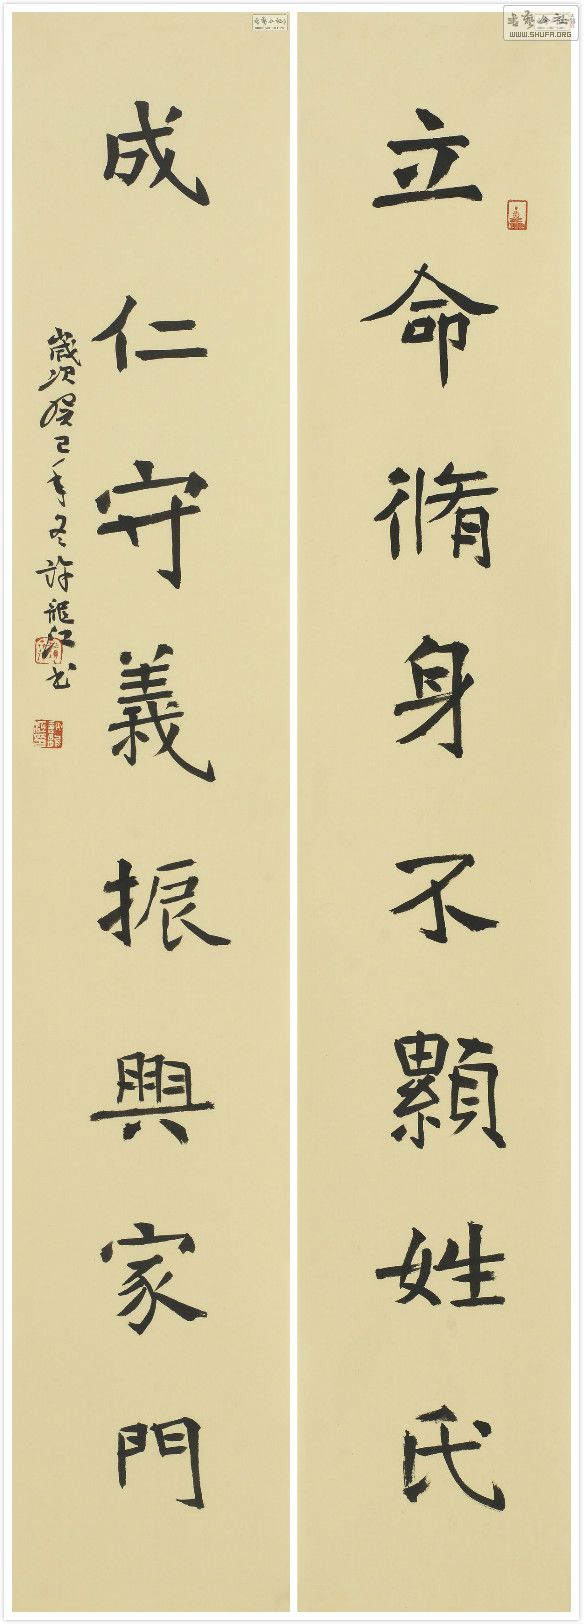 书艺公社
WWW.SHUFA.ORG
立命脩身不顯姓氏
成仁守義振興家門
歲次癸巳年冬許龍江书